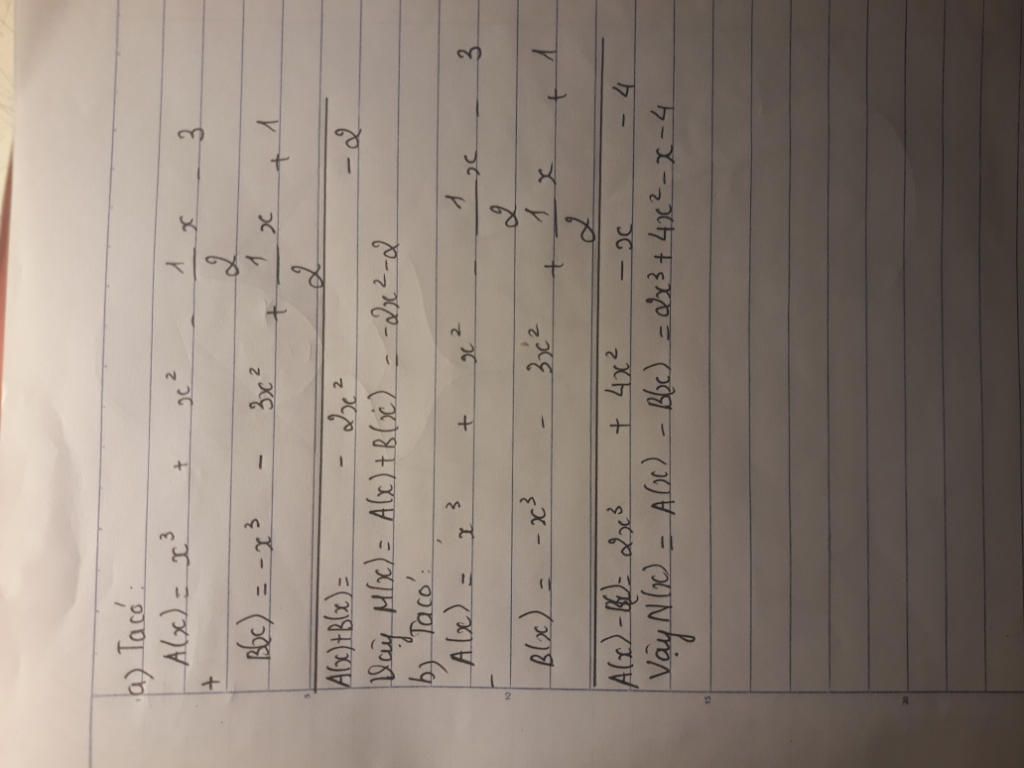 a) Ta có:
A(x) = x³ + x² - 1/2 x - 3
+
B(x) = -x³ - 3x² + 1/2 x + 1
A(x)+B(x)= - 2x² - 2
Vậy M(x) = A(x)+B(x) = -2x²-2
b) Ta có:
A(x) = x³ + x² - 1/2 x - 3
-
B(x) = -x³ - 3x² + 1/2 x + 1
A(x) - B(x) = 2x³ + 4x² - x - 4
Vậy N(x) = A(x) - B(x) = 2x³ + 4x² - x - 4
5
10
15
20